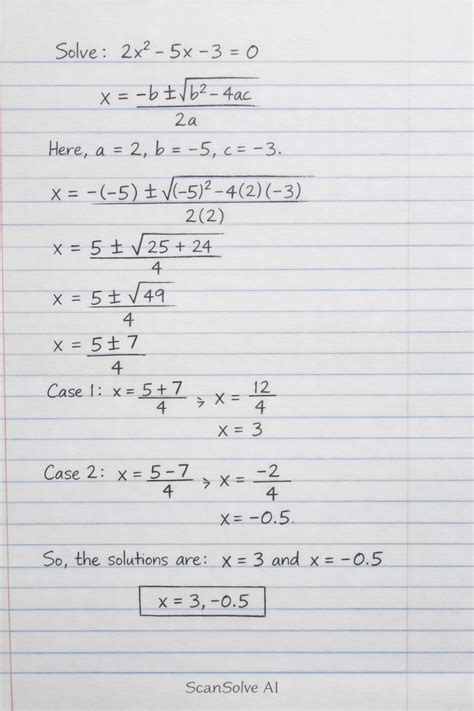 Solve: 2x² - 5x - 3 = 0
x = (-b ± √(b² - 4ac)) / 2a
Here, a = 2, b = -5, c = -3.
x = (-(-5) ± √((-5)² - 4(2)(-3))) / 2(2)
x = (5 ± √(25 + 24)) / 4
x = (5 ± √49) / 4
x = (5 ± 7) / 4
Case 1: x = (5 + 7) / 4 → x = 12 / 4
x = 3
Case 2: x = (5 - 7) / 4 → x = -2 / 4
x = -0.5.
So, the solutions are: x = 3 and x = -0.5
x = 3, -0.5
ScanSolve AI